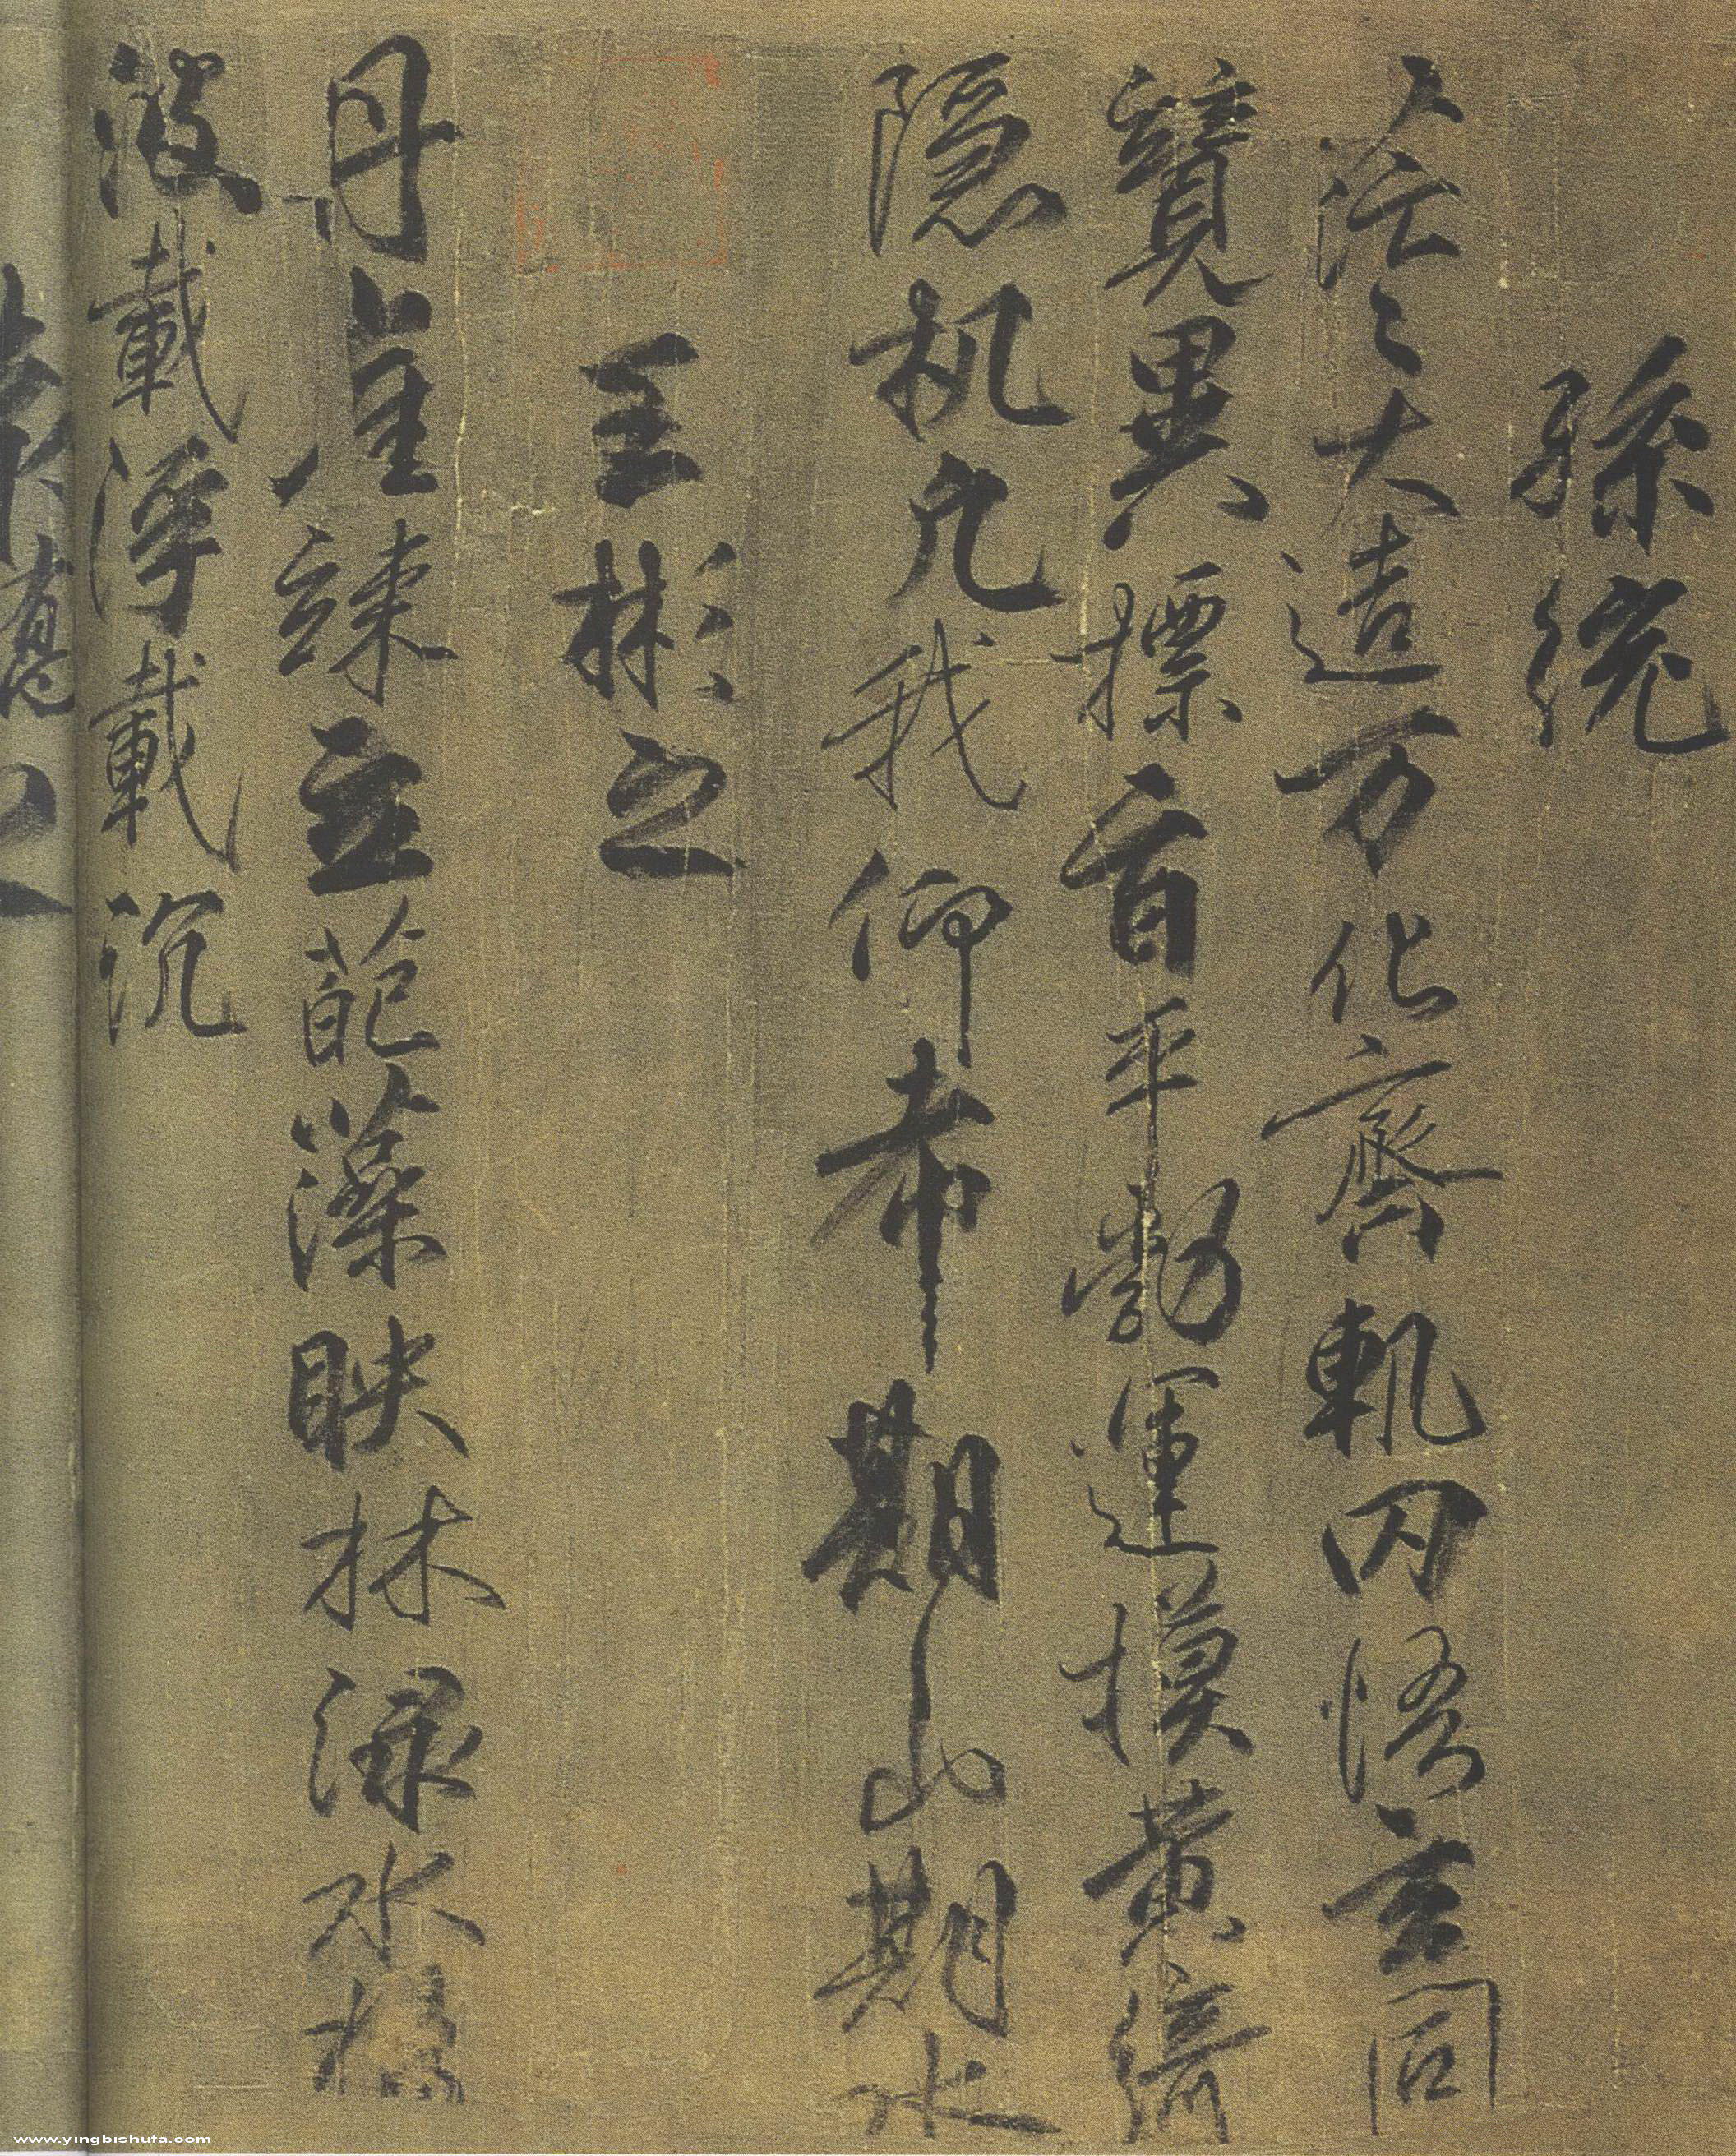 孫統
茫〻大造万化齊軌罔悟玄同
競異標旨平勃運模黃綺
隱机凡我仰希期山期水
王彬之
丹崖竦立葩藻映林淥水揚
波載浮載沉
www.yingbishufa.com